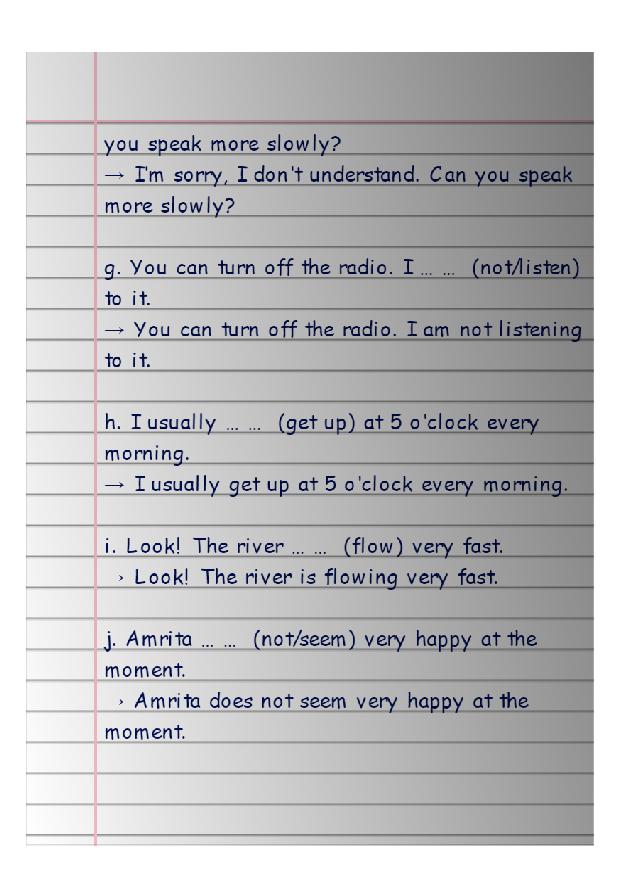 you speak more slowly?
→ I'm sorry, I don't understand. Can you speak
more slowly?
g. You can turn off the radio. I ... ... (not/listen)
to it.
→ You can turn off the radio. I am not listening
to it.
h. I usually ... ... (get up) at 5 o'clock every
morning.
→ I usually get up at 5 o'clock every morning.
i. Look! The river ... ... (flow) very fast.
› Look! The river is flowing very fast.
j. Amrita ... ... (not/seem) very happy at the
moment.
› Amrita does not seem very happy at the
moment.